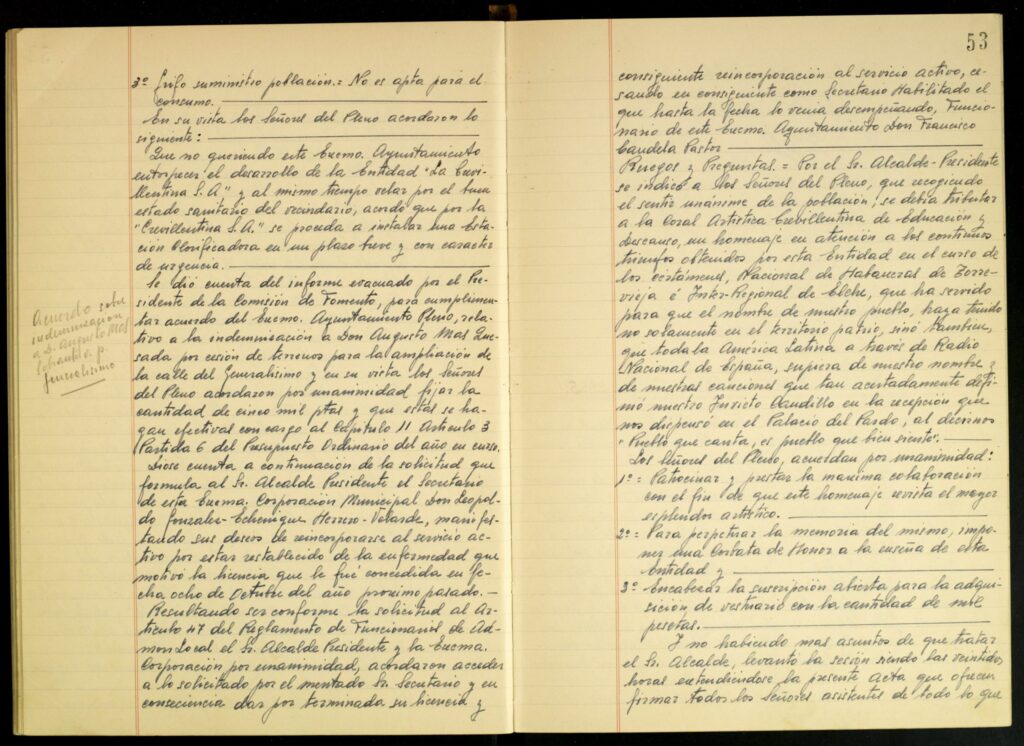 3º Grifo suministro población.= No es apta para el
consumo.
En su vista los Señores del Pleno acordaron lo
siguiente:
Que no queriendo este Excmo. Ayuntamiento
entorpecer el desarrollo de la Entidad "La Crevi-
llentina S.A." y al mismo tiempo velar por el buen
estado sanitario del vecindario, acordó que por la
"Crevillentina S.A." se proceda a instalar una Esta-
ción Clorificadora en un plazo breve y con caracter
de urgencia.
Se dió cuenta del informe evacuado por el Pre-
sidente de la Comisión de Fomento, para cumplimen-
tar acuerdo del Excmo. Ayuntamiento Pleno, rela-
tivo a la indemnización a Don Augusto Mas Que-
sada por cesión de terrenos para la ampliación de
la calle del Generalísimo y en su vista los Señores
del Pleno acordaron por unanimidad fijar la
cantidad de cinco mil ptas y que estas se ha-
gan efectivas con cargo al Capítulo 11 Artículo 3
Partida 6 del Presupuesto Ordinario del año en curso.
Diose cuenta a continuación de la solicitud que
formula al Sr. Alcalde Presidente el Secretario
de esta Excma. Corporación Municipal Don Leopol-
do Gonzalez-Echenique Herrero-Velarde, manifes-
tando sus deseos de reincorporarse al servicio ac-
tivo por estar restablecido de la enfermedad que
motivó la licencia que le fué concedida en fe-
cha ocho de Octubre del año proximo pasado.-
Resultando ser conforme la solicitud al Ar-
tículo 47 del Reglamento de Funcionarios de Ad-
mon Local el Sr. Alcalde Presidente y la Excma.
Corporación por unanimidad, acordaron acceder
a lo solicitado por el mentado Sr. Secretario y en
consecuencia dar por terminada su licencia y
Acuerdo sobre
indemnizacion
a D. Augusto Mas
Generalisimo
53
consiguiente reincorporación al servicio activo, ce-
sando en consiguiente como Secretario Habilitado el
que hasta la fecha lo venia desempeñando, Funcio-
nario de este Excmo. Ayuntamiento Don Francisco
Candela Pastor
Ruegos y Preguntas.= Por el Sr. Alcalde-Presidente
se indicó a los Señores del Pleno, que recogiendo
el sentir unánime de la población, se debía tributar
a la Coral Artística Crevillentina de Educación y
Descanso, un homenaje en atención a los continuos
triunfos obtenidos por esta Entidad en el curso de
los certámenes, Nacional de Habaneras de Torre-
vieja é Inter-Regional de Elche, que ha servido
para que el nombre de nuestro pueblo, haya tenido
no solamente en el territorio patrio, sinó tambien,
que toda la América Latina a través de Radio
Nacional de España, supiera de nuestro nombre y
de nuestras canciones que tan acertadamente defi-
nió nuestro Invicto Caudillo en la recepción que
nos dispensó en el Palacio del Pardo, al decirnos
"Pueblo que canta, es pueblo que bien siente".
Los Señores del Pleno, acuerdan por unanimidad:
1º = Patrocinar y prestar la maxima colaboración
con el fin de que este homenaje revista el mayor
esplendor artístico.
2º = Para perpetuar la memoria del mismo, impo-
ner una Corbata de Honor a la enseña de esta
Entidad y
3º = Encabezar la suscripción abierta para la adqui-
sición de vestuario con la cantidad de mil
pesetas.
Y no habiendo mas asuntos de que tratar
el Sr. Alcalde, levantó la sesión siendo las veintidos
horas extendiéndose la presente Acta que ofrecen
firmar todos los Señores asistentes de todo lo que